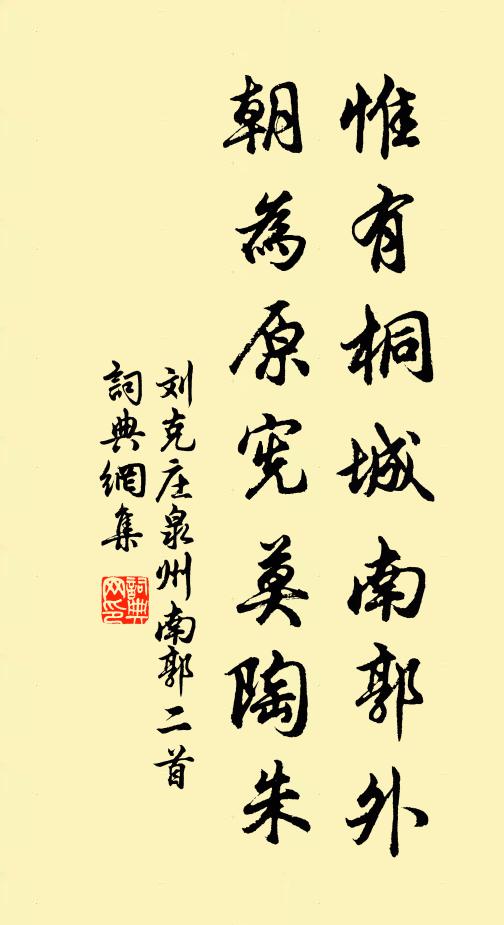 惟有桐城南郭外
朝為原宪莫陶朱
刘克庄泉州南郭二首
詞典網集
詞典网印